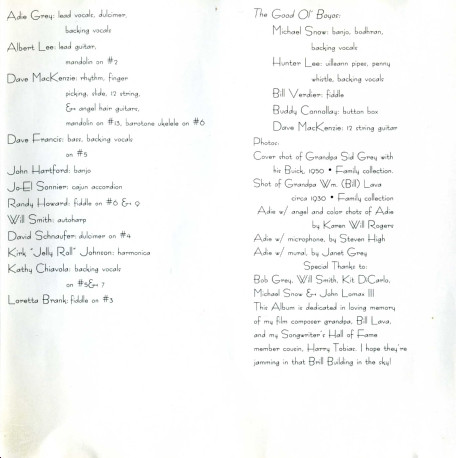 Adie Grey: lead vocals, dulcimer,
backing vocals
Albert Lee: lead guitar,
mandolin on #2
Dave MacKenzie: rhythm, finger
picking, slide, 12 string,
& angel hair guitars,
mandolin on #13, baritone ukelele on #6
Dave Francis: bass, backing vocals
on #5
John Hartford: banjo
Jo-El Sonnier: cajun accordion
Randy Howard: fiddle on #6 & 9
Will Smith: autoharp
David Schnaufer: dulcimer on #4
Kirk "Jelly Roll" Johnson: harmonica
Kathy Chiavola: backing vocals
on #5 & 7
Loretta Brank: fiddle on #3
The Good Ol' Boyos:
Michael Snow: banjo, bodhran,
backing vocals
Hunter Lee: uilleann pipes, penny
whistle, backing vocals
Bill Verdier: fiddle
Buddy Connolloy: button box
Dave MacKenzie: 12 string guitar
Photos:
Cover shot of Grandpa Sid Grey with
his Buick, 1930 • Family collection.
Shot of Grandpa Wm. (Bill) Lava
circa 1930 • Family collection
Adie w/ angel and color shots of Adie
by Karen Will Rogers
Adie w/ microphone, by Steven High
Adie w/ mural, by Janet Grey
Special Thanks to:
Bob Grey, Will Smith, Kit DiCarlo,
Michael Snow & John Lomax III
This Album is dedicated in loving memory
of my film composer grandpa, Bill Lava,
and my Songwriter's Hall of Fame
member cousin, Harry Tobias. I hope they're
jamming in that Brill Building in the sky!